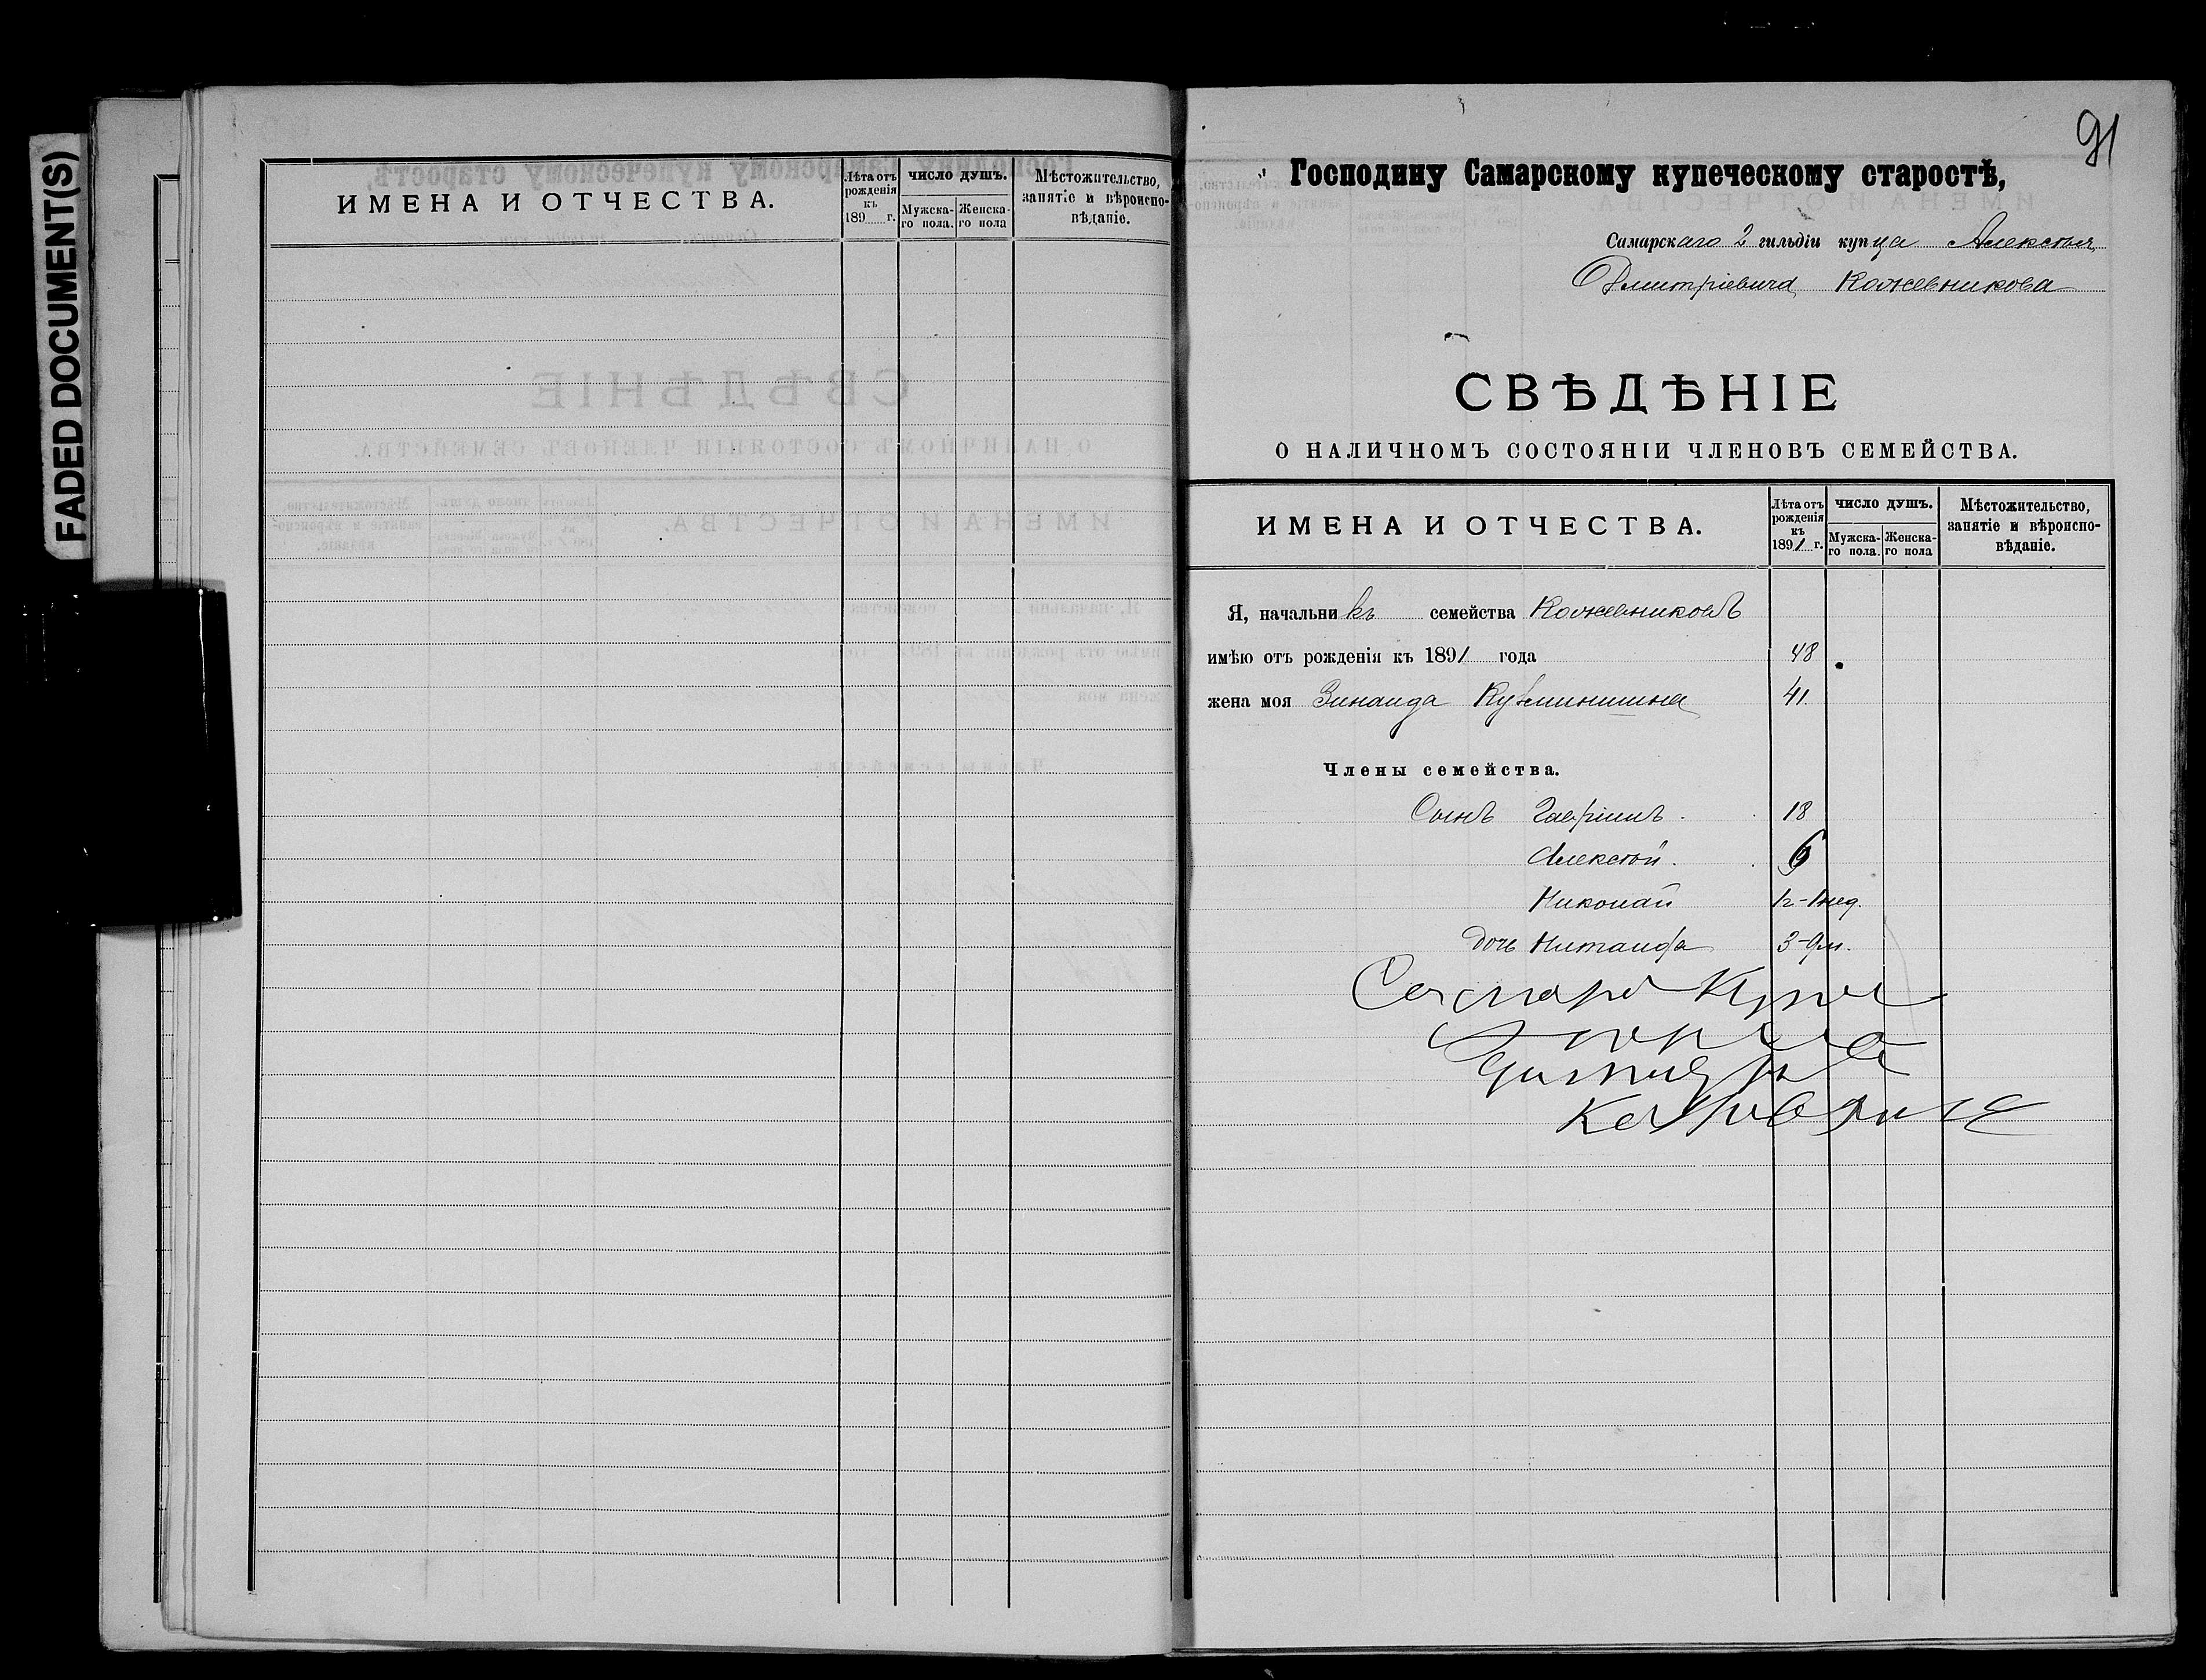 FADED DOCUMENT(S)
ИМЕНА И ОТЧЕСТВА.
Лѣта отъ рожденія къ 189 г.
ЧИСЛО ДУШЪ.
Мужска-го пола.
Женска-го пола
Мѣстожительство, занятіе и вѣроиспо-вѣданіе.
91
Господину Самарскому купеческому старостѣ,
Самарскаго 2 гильдіи купца Алексѣя
Дмитріевича Кожевникова
СВѢДѢНІЕ
О НАЛИЧНОМЪ СОСТОЯНІИ ЧЛЕНОВЪ СЕМЕЙСТВА.
ИМЕНА И ОТЧЕСТВА.
Лѣта отъ рожденія къ 1891 г.
ЧИСЛО ДУШЪ.
Мужска-го пола.
Женска-го пола
Мѣстожительство, занятіе и вѣроиспо-вѣданіе.
Я, начальникъ семейства Кожевниковъ
имѣю отъ рожденія къ 1891 года 48
жена моя Зинаида 41
Члены семейства.
Сынъ Гавріилъ. 18
Алексѣй. 6
Николай 1/2-1 нед.
Дочь 3-9 м.